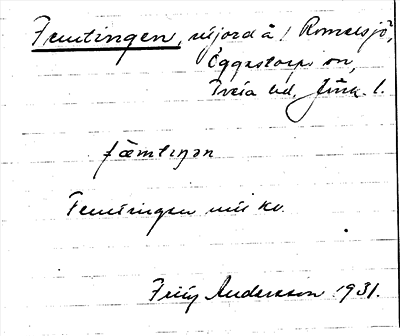 Femtingen, nyjord å 1 Romelsjö,
Eggestorps sn,
Tveta hd, Jönk. l.
fæmtıŋən
Femtingen mit kv.
Fritz Andersson 1931.